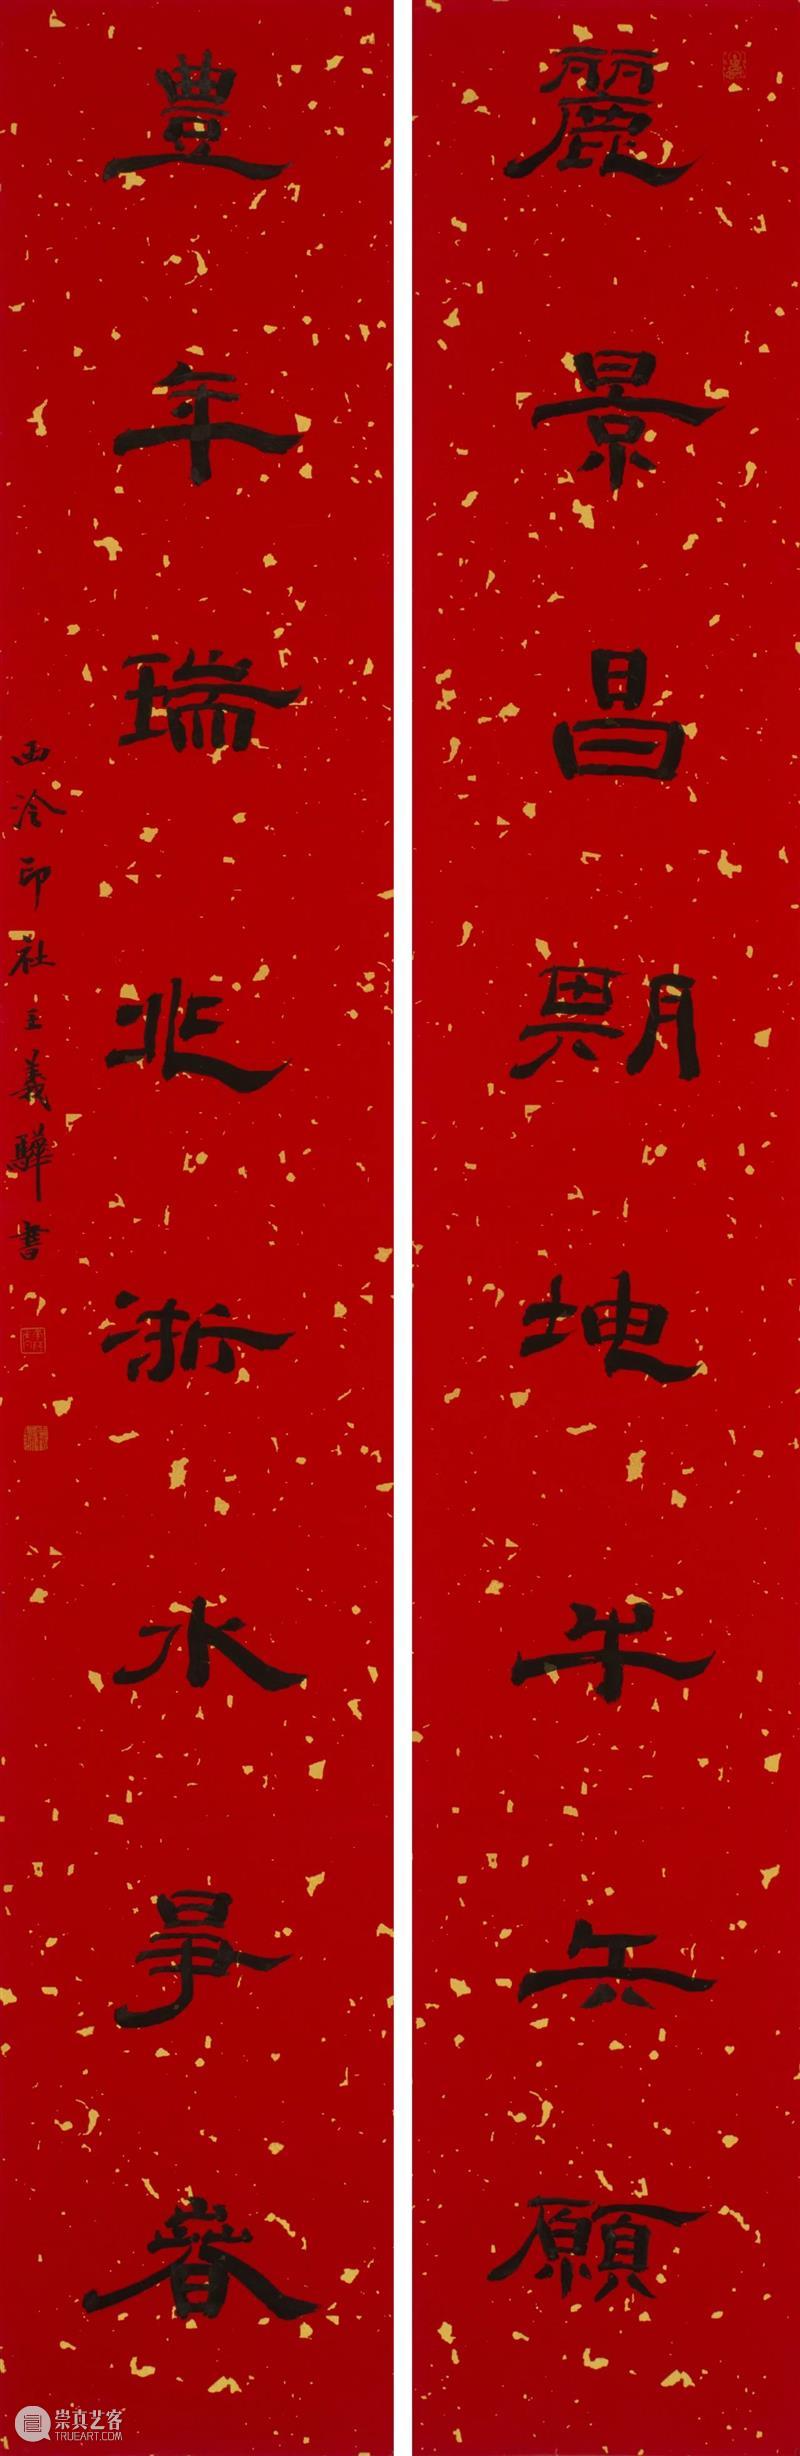 麗景昌期坤牛願
豊年瑞兆浙水爭春
西泠印社王義驊書
崇真艺客
TRUEART.COM